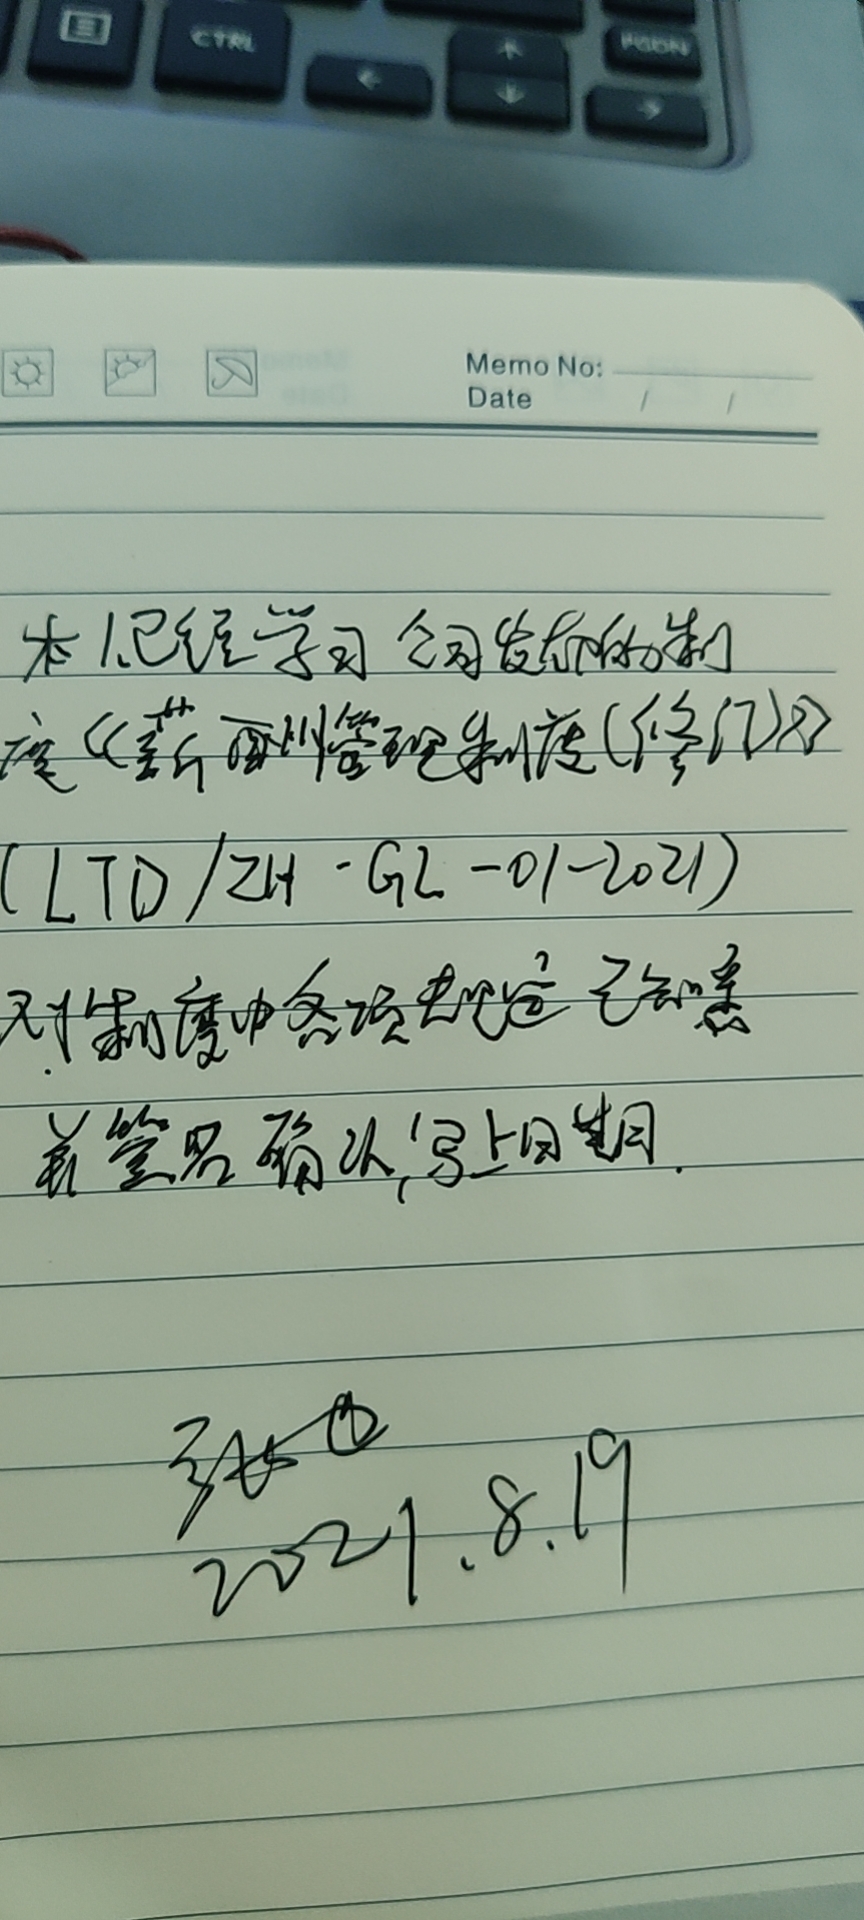 CTRL
PGDN
Memo No:
Date / /
本人已经学习公司发布的制
度《薪酬管理制度(修订)》
(LTD/ZH-GL-01-2021)
对制度中各项规定已知悉
并签名确认,写上日期.
张
2021.8.19